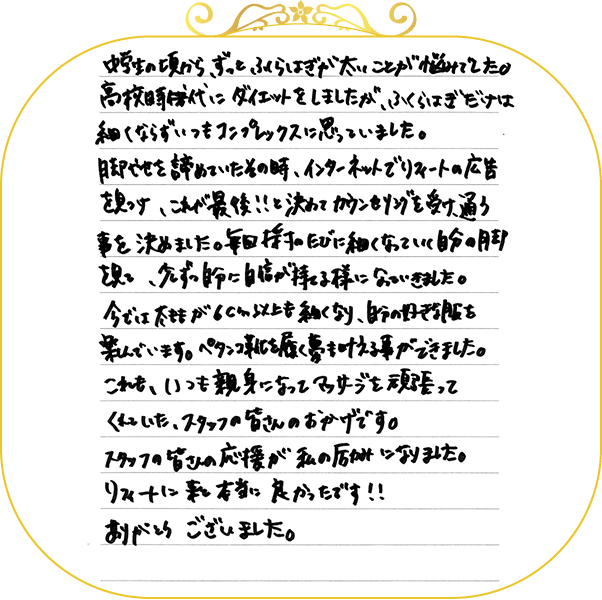 中学生の頃から、ずっとふくらはぎが太いことが悩みでした。
高校時代にダイエットをしましたが、ふくらはぎだけは
細くならずいつもコンプレックスに思っていました。
脚やせを諦めていたその時、インターネットでリフィートの広告
を見つけ、これが最後!!と決めてカウンセリングを受け、通う
事を決めました。毎回採寸のたびに細くなっていく自分の脚
を見て、少しずつ自分に自信が持てる様になっていきました。
今では太ももが6cm以上も細くなり、自分の好きな服を
楽しんでいます。ペタンコ靴を履く夢も叶える事ができました。
これも、いつも親身になってマッサージを頑張って
くれていた、スタッフの皆さんのおかげです。
スタッフの皆さんの応援が私の励みになりました。
リフィートに来て本当に良かったです!!
ありがとうございました。